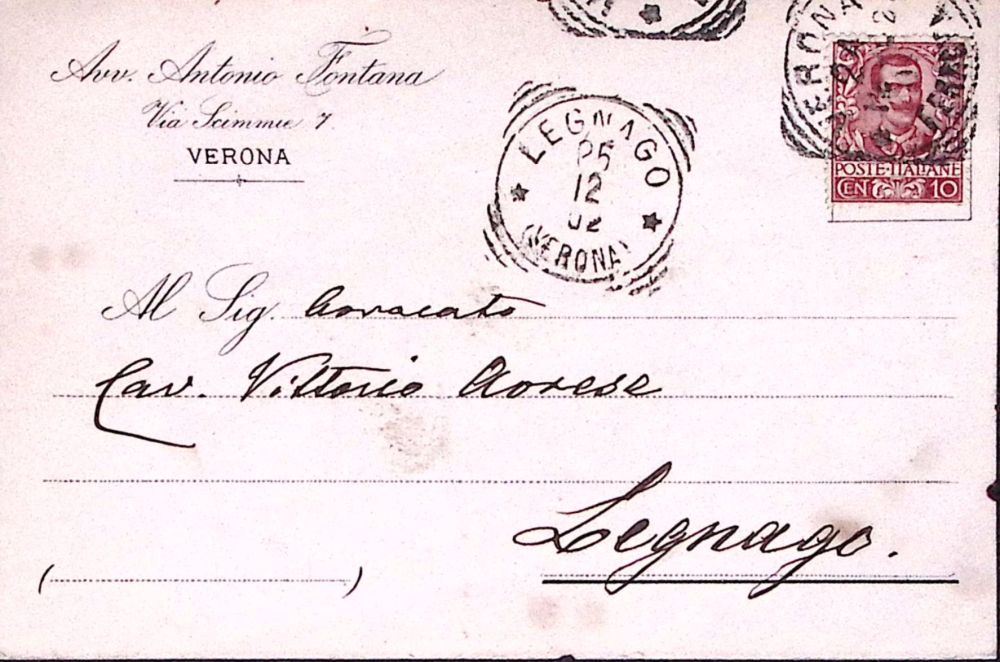 Avv. Antonio Fontana
Via Scimmie 7.
VERONA
LEGNAGO
25
12
02
(VERONA)
VERONA
POSTE·ITALIANE
CEN 10
Al Sig. Avvocato
Cav. Vittorio Avrese
Legnago.
( )